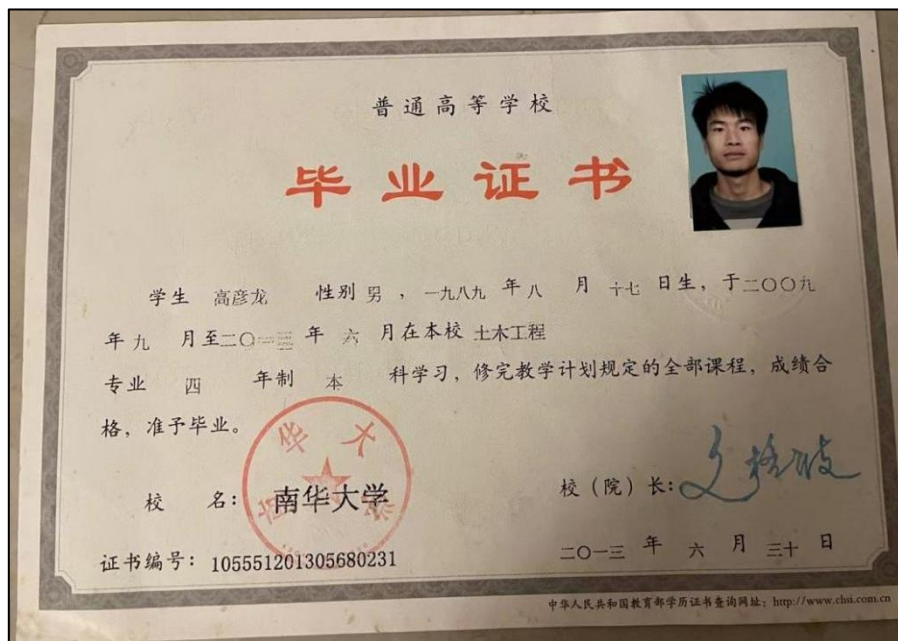 普通高等学校
毕业证书
学生 高彦龙 性别 男 ，一九八九 年 八 月 十七 日生，于二〇〇九
年 九 月至二〇一三 年 六 月在本校 土木工程
专业 四 年制 本 科学习，修完教学计划规定的全部课程，成绩合
格，准予毕业。
校 名： 南华大学
校（院）长：
证书编号：105551201305680231
二〇一三 年 六 月 三十 日
中华人民共和国教育部学历证书查询网址：http://www.chsi.com.cn